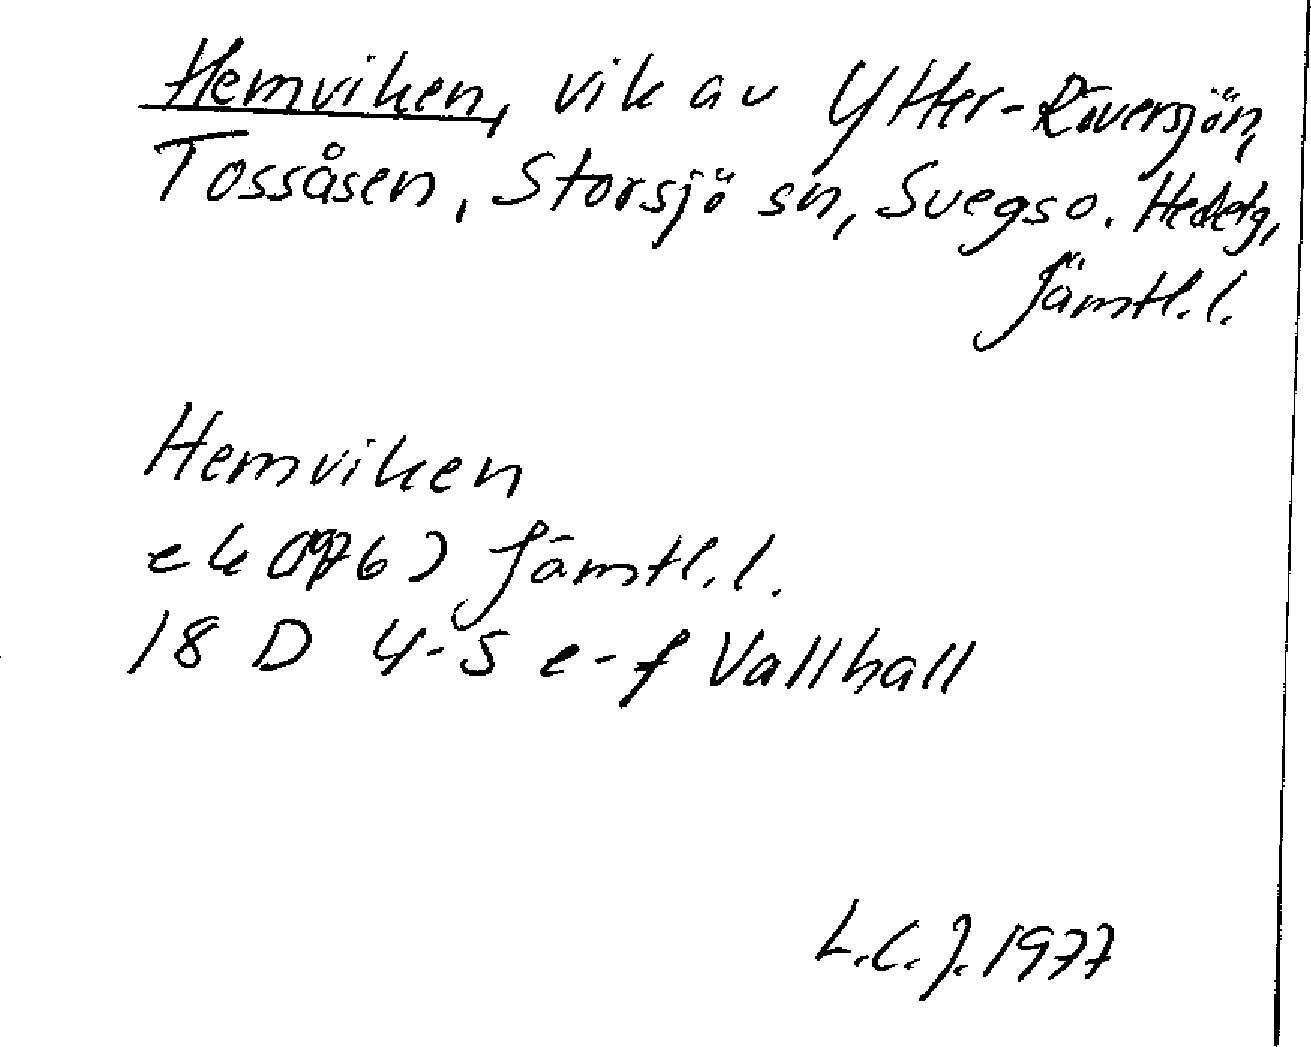 Hemviken, vik av Ytter-Röversjön,
Tossåsen, Storsjö sn, Svegs o. Hedebg,
Jämtl. l.
Hemviken
ek (1976) Jämtl. l.
18 D 4-5 e-f Vallhall
L.C.J. 1977